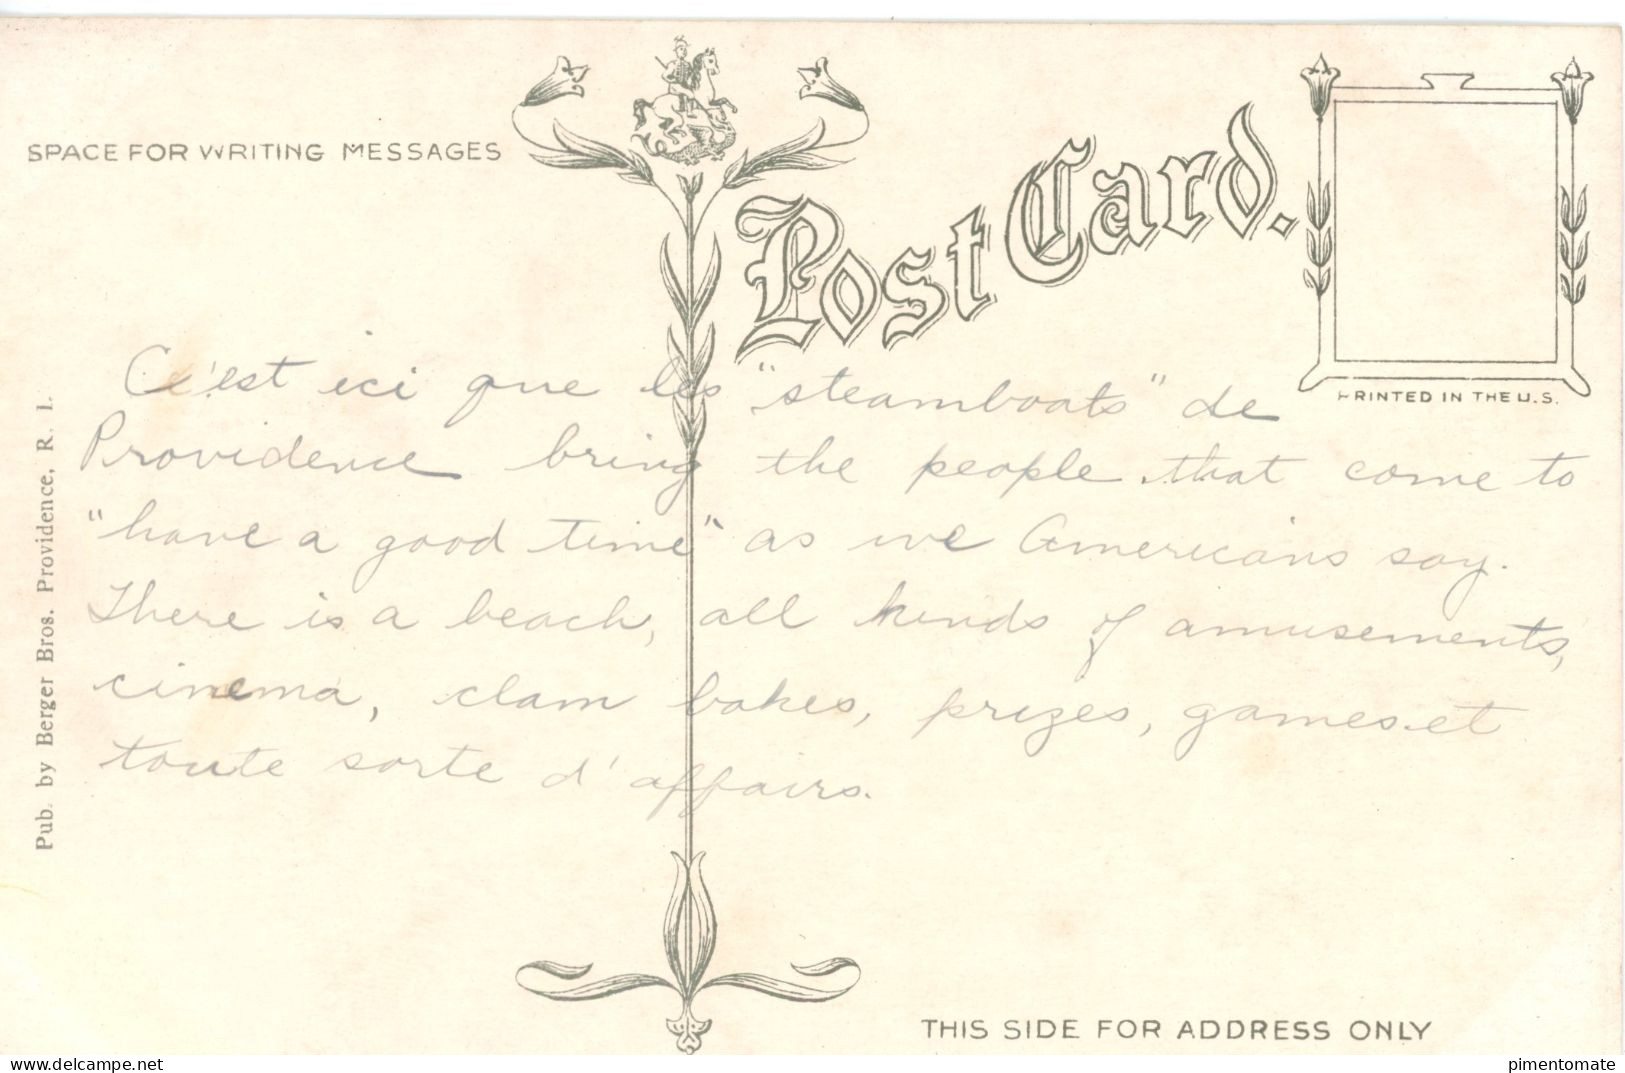 SPACE FOR WRITING MESSAGES
Post Card.
PRINTED IN THE U.S.
C'est ici que les "steamboats" de
Providence bring the people that come to
"have a good time" as we Americans say.
There is a beach, all kinds of amusements,
cinema, clam bakes, prizes, games et
toute sorte d'affairs.
Pub. by Berger Bros. Providence, R. I.
THIS SIDE FOR ADDRESS ONLY
www.delcampe.net
pimentomate